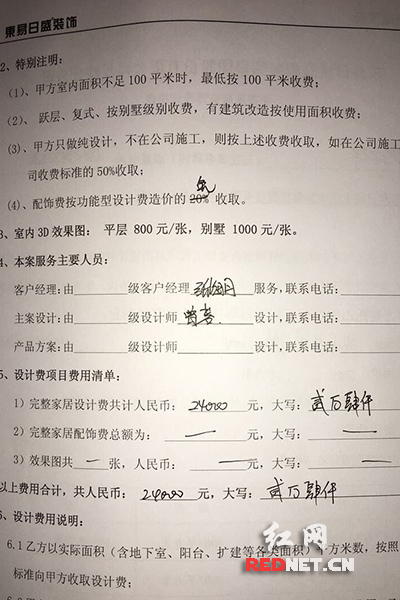 東易日盛装饰
2、特别注明：
（1）、甲方室内面积不足100平米时，最低按100平米收费；
（2）、 跃层、复式、按别墅级别收费，有建筑改造按使用面积收费；
（3）、甲方只做纯设计，不在公司施工，则按上述收费收取，如在公司施工
司收费标准的50%收取；
（4）、配饰费按功能型设计费造价的 20% 收取。
3、室内3D效果图： 平层 800 元/张，别墅 1000 元/张。
4、本案服务主要人员：
客户经理：由______级客户经理______服务，联系电话：______
主案设计：由______级设计师 曾喜 设计，联系电话：______
产品方案：由______级设计师______设计，联系电话：______
5、设计费项目费用清单：
1）完整家居设计费共计人民币： 24000 元，大写： 贰万肆仟
2）完整家居配饰费总额为： — 元，大写： —
3）效果图共 — 张，人民币： — 元，大写： —
以上费用合计，共人民币： 24000 元，大写： 贰万肆仟
6、设计费用说明：
6.1 乙方以实际面积（含地下室、阳台、扩建等各类面积）平方米数，按照
标准向甲方收取设计费；
红网
REDNET.CN